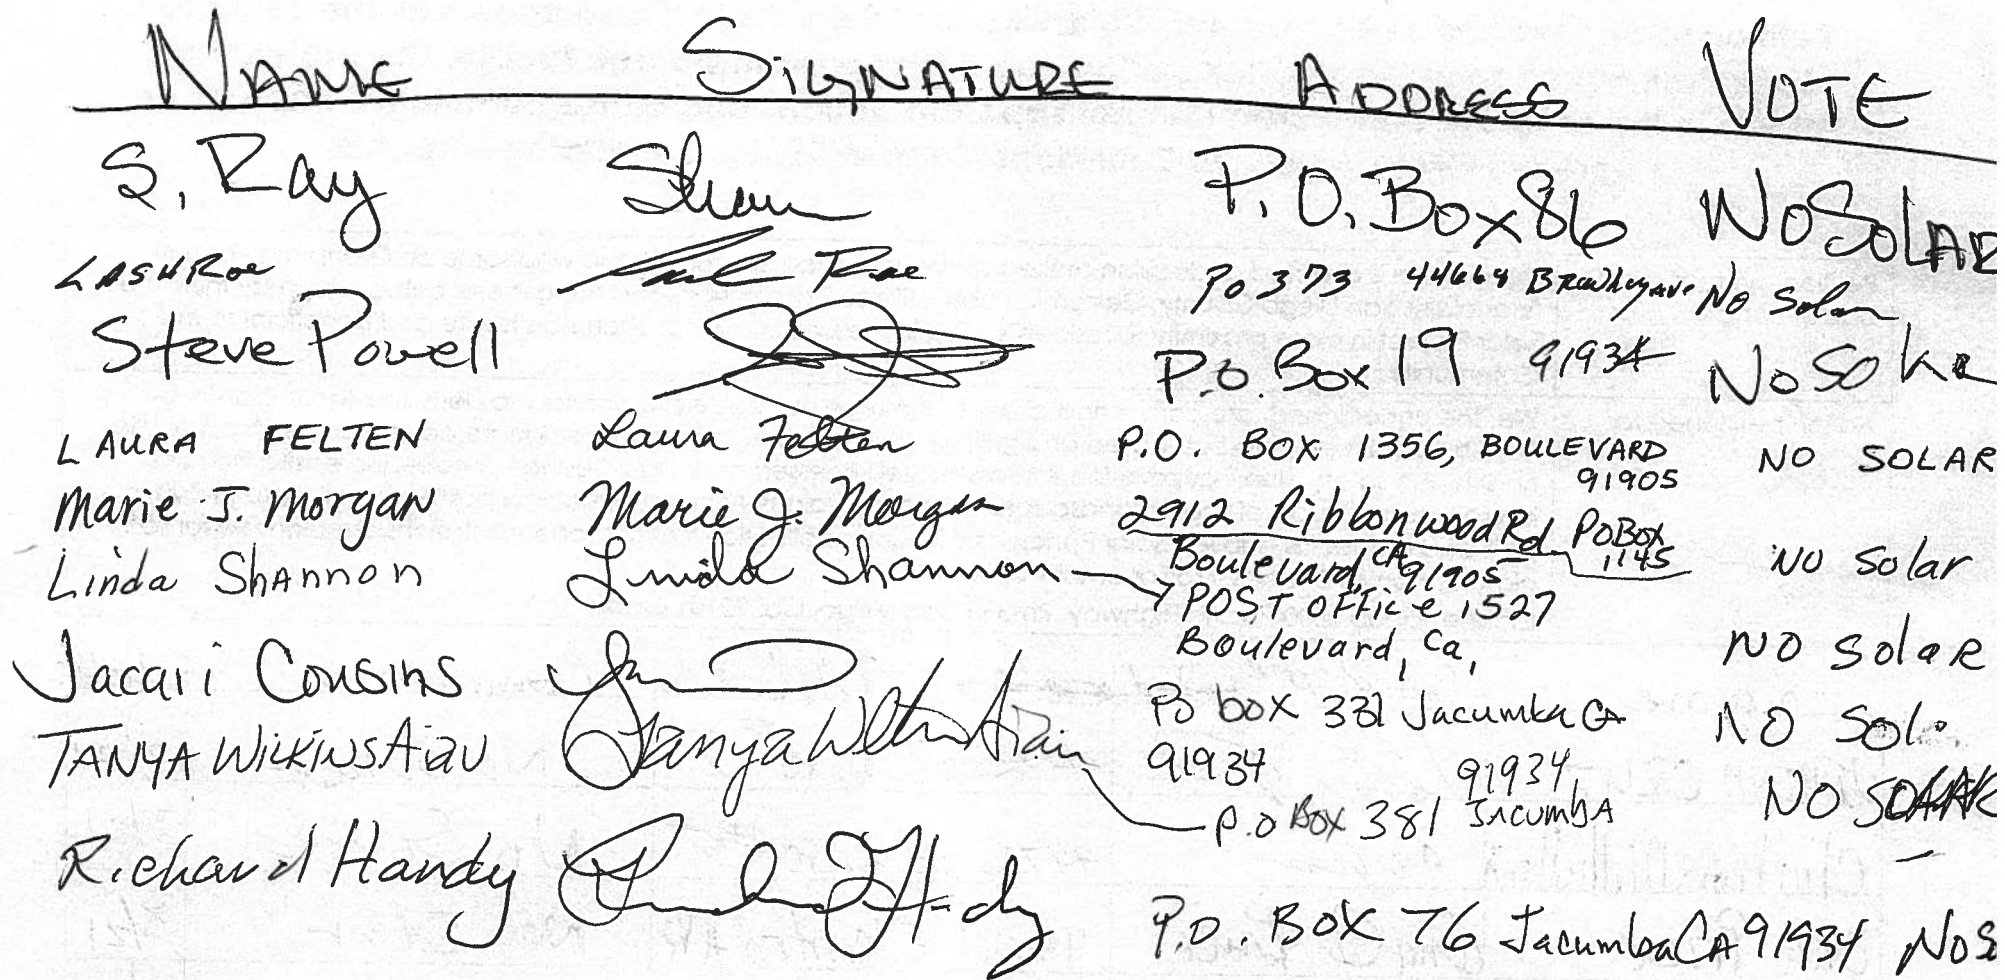 NAME SIGNATURE ADDRESS VOTE
S. Ray P.O. Box 86 No SOLAR
LASH Roe Roe Po 373 44664 No Solar
Steve Powell P.O. Box 19 91934 No Solar
LAURA FELTEN Laura Felten P.O. BOX 1356, BOULEVARD NO SOLAR
91905
Marie J. Morgan Marie J. Morgan 2912 Ribbonwood Rd PO Box
1145
Boulevard, CA 91905 NO Solar
Linda Shannon Linda Shannon POST OFFice 1527
Boulevard, Ca, NO Solar
Jacari Cousins PO box 331 Jacumba CA NO Sol
91934
TANYA Tanya P.O Box 381 Jacumba NO
91934
Richard Handy P.O. BOX 76 Jacumba CA 91934 No S